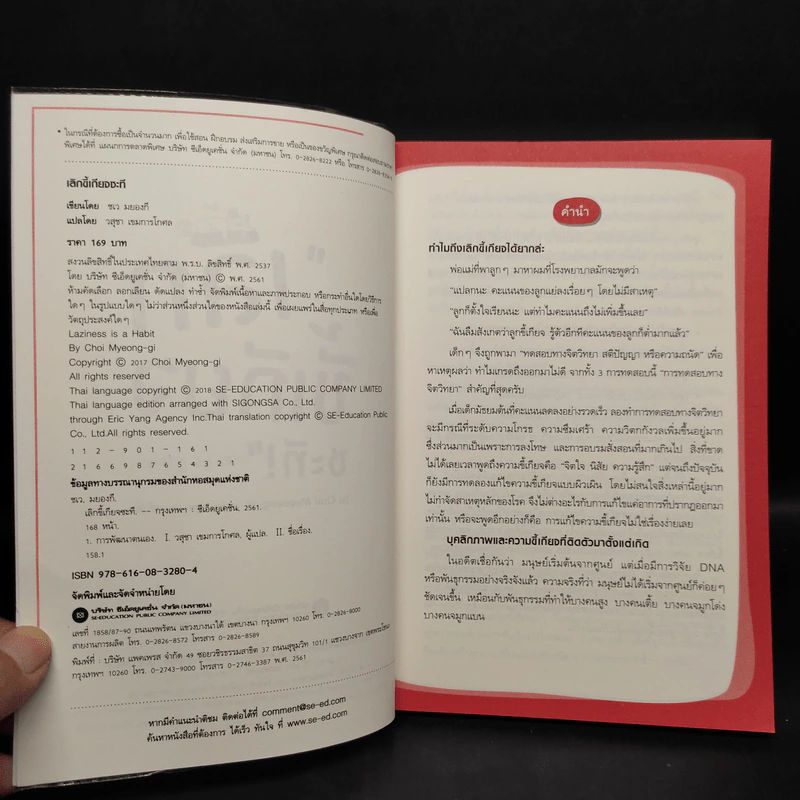 • ในกรณีที่ต้องการซื้อเป็นจำนวนมาก เพื่อใช้สอน ฝึกอบรม ส่งเสริมการขาย หรือเป็นของขวัญพิเศษ กรุณาติดต่อสอบถาม
พิเศษได้ที่ แผนกการตลาดพิเศษ บริษัท ซีเอ็ดยูเคชั่น จำกัด (มหาชน) โทร. 0-2826-8222 หรือ โทรสาร
เลิกขี้เกียจซะที
เขียนโดย ชเว มยองกี
แปลโดย วสุชา เขมการโกศล
ราคา 169 บาท
สงวนลิขสิทธิ์ในประเทศไทยตาม พ.ร.บ. ลิขสิทธิ์ พ.ศ. 2537
โดย บริษัท ซีเอ็ดยูเคชั่น จำกัด (มหาชน) © พ.ศ. 2561
ห้ามคัดเลือก ลอกเลียน ดัดแปลง ทำซ้ำ จัดพิมพ์เนื้อหาและภาพประกอบ หรือกระทำอื่นใดโดยวิธีการ
ใดๆ ในรูปแบบใดๆ ไม่ว่าส่วนหนึ่งส่วนใดของหนังสือเล่มนี้ เพื่อเผยแพร่ในสื่อทุกประเภท หรือเพื่อ
วัตถุประสงค์ใดๆ
Laziness is a Habit
By Choi Myeong-gi
Copyright © 2017 Choi Myeong-gi
All rights reserved
Thai language copyright © 2018 SE-EDUCATION PUBLIC COMPANY LIMITED
Thai language edition arranged with SIGONGSA Co., Ltd.
through Eric Yang Agency Inc.Thai translation copyright © SE-Education Public
Co., Ltd.All rights reserved.
1 1 2 - 9 0 1 - 1 6 1
2 1 6 6 9 8 7 6 5 4 3 2 1
ข้อมูลทางบรรณานุกรมของสำนักหอสมุดแห่งชาติ
ชเว, มยองกี.
เลิกขี้เกียจซะที. -- กรุงเทพฯ : ซีเอ็ดยูเคชั่น, 2561.
168 หน้า.
1. การพัฒนาตนเอง. I. วสุชา เขมการโกศล, ผู้แปล. II. ชื่อเรื่อง.
158.1
ISBN 978-616-08-3280-4
จัดพิมพ์และจัดจำหน่ายโดย
บริษัท ซีเอ็ดยูเคชั่น จำกัด (มหาชน)
SE-EDUCATION PUBLIC COMPANY LIMITED
เลขที่ 1858/87-90 ถนนเทพรัตน แขวงบางนาใต้ เขตบางนา กรุงเทพฯ 10260 โทร. 0-2826-8000
สายงานการผลิต โทร. 0-2826-8572 โทรสาร 0-2826-8589
พิมพ์ที่ : บริษัท แพคเพรส จำกัด 49 ซอยวชิรธรรมสาธิต 37 ถนนสุขุมวิท 101/1 แขวงบางจาก เขตพระโขนง
กรุงเทพฯ 10260 โทร. 0-2743-9000 โทรสาร 0-2746-3387 พ.ศ. 2561
หากมีคำแนะนำติชม ติดต่อได้ที่ comment@se-ed.com
ค้นหาหนังสือที่ต้องการ ได้เร็ว ทันใจ ที่ www.se-ed.com
คำนำ
ทำไมถึงเลิกขี้เกียจได้ยากล่ะ
พ่อแม่ที่พาลูกๆ มาหาผมที่โรงพยาบาลมักจะพูดว่า
“แปลกนะ คะแนนของลูกแย่ลงเรื่อยๆ โดยไม่มีสาเหตุ”
“ลูกก็ตั้งใจเรียนนะ แต่ทำไมคะแนนถึงไม่เพิ่มขึ้นเลย”
“ฉันลืมสังเกตว่าลูกขี้เกียจ รู้ตัวอีกทีคะแนนของลูกก็ต่ำมากแล้ว”
เด็กๆ จึงถูกพามา “ทดสอบทางจิตวิทยา สติปัญญา หรือความถนัด” เพื่อ
หาเหตุผลว่า ทำไมเกรดถึงออกมาไม่ดี จากทั้ง 3 การทดสอบนี้ “การทดสอบทาง
จิตวิทยา” สำคัญที่สุดครับ
เมื่อเด็กมัธยมต้นที่คะแนนลดลงอย่างรวดเร็ว ลองทำการทดสอบทางจิตวิทยา
จะมีกรณีที่ระดับความโกรธ ความซึมเศร้า ความวิตกกังวลเพิ่มขึ้นอยู่มาก
ซึ่งส่วนมากเป็นเพราะการลงโทษ และการอบรมสั่งสอนที่มากเกินไป สิ่งที่ขาด
ไม่ได้เลยเวลาพูดถึงความขี้เกียจคือ “จิตใจ นิสัย ความรู้สึก” แต่จนถึงปัจจุบัน
ก็ยังมีการทดลองแก้ไขความขี้เกียจแบบผิวเผิน โดยไม่สนใจสิ่งเหล่านี้อยู่มาก
ไม่กำจัดสาเหตุหลักของโรค จึงไม่ต่างอะไรกับการแก้ไขแค่อาการที่ปรากฏออกมา
เท่านั้น หรือจะพูดอีกอย่างก็คือ การแก้ไขความขี้เกียจไม่ใช่เรื่องง่ายเลย
บุคลิกภาพและความขี้เกียจที่ติดตัวมาตั้งแต่เกิด
ในอดีตเชื่อกันว่า มนุษย์เริ่มต้นจากศูนย์ แต่เมื่อมีการวิจัย DNA
หรือพันธุกรรมอย่างจริงจังแล้ว ความจริงที่ว่า มนุษย์ไม่ได้เริ่มจากศูนย์ก็ค่อยๆ
ชัดเจนขึ้น เหมือนกับพันธุกรรมที่ทำให้บางคนสูง บางคนเตี้ย บางคนจมูกโด่ง
บางคนจมูกแบน